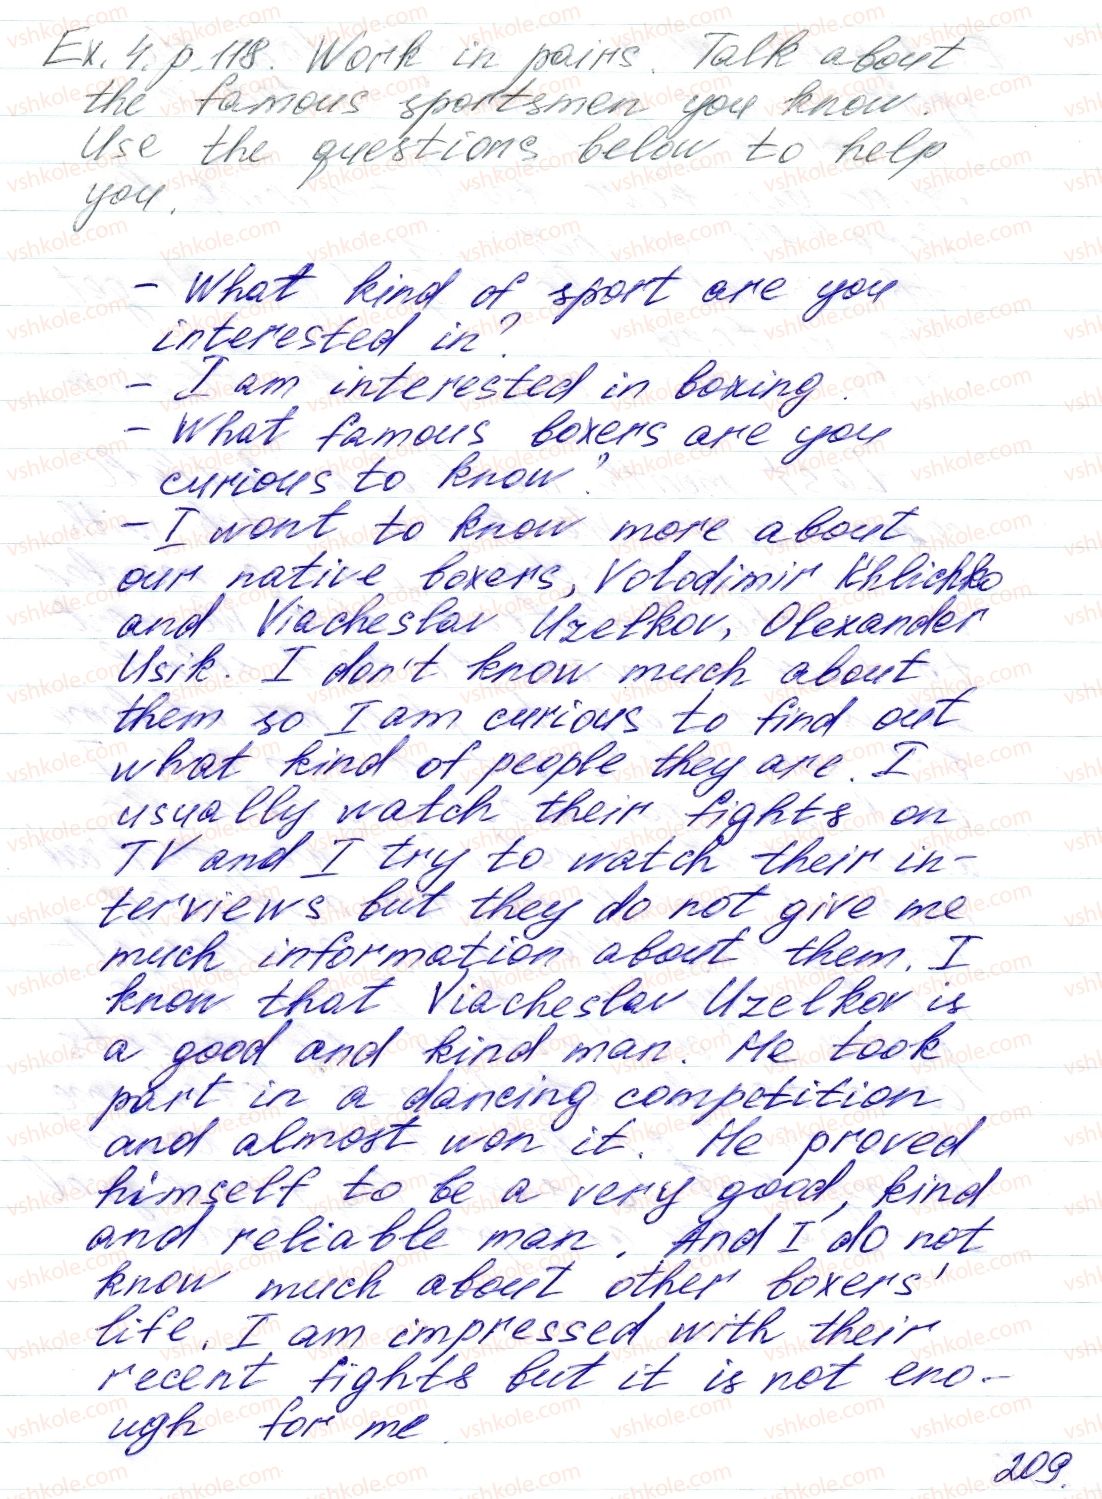 Ex. 4. p. 118. Work in pairs. Talk about
the famous sportsmen you know.
Use the questions below to help
you.
- What kind of sport are you
interested in?
- I am interested in boxing.
- What famous boxers are you
curious to know?
- I wont to know more about
our native boxers, Volodimir Khlichko
and Viacheslav Uzelkov, Olexander
Usik. I don't know much about
them so I am curious to find out
what kind of people they are. I
usually watch their fights on
TV and I try to watch their in-
terviews but they do not give me
much information about them. I
know that Viacheslav Uzelkov is
a good and kind man. He took
part in a dancing competition
and almost won it. He proved
himself to be a very good, kind
and reliable man. And I do not
know much about other boxers'
life. I am impressed with their
recent fights but it is not eno-
ugh for me.
209.